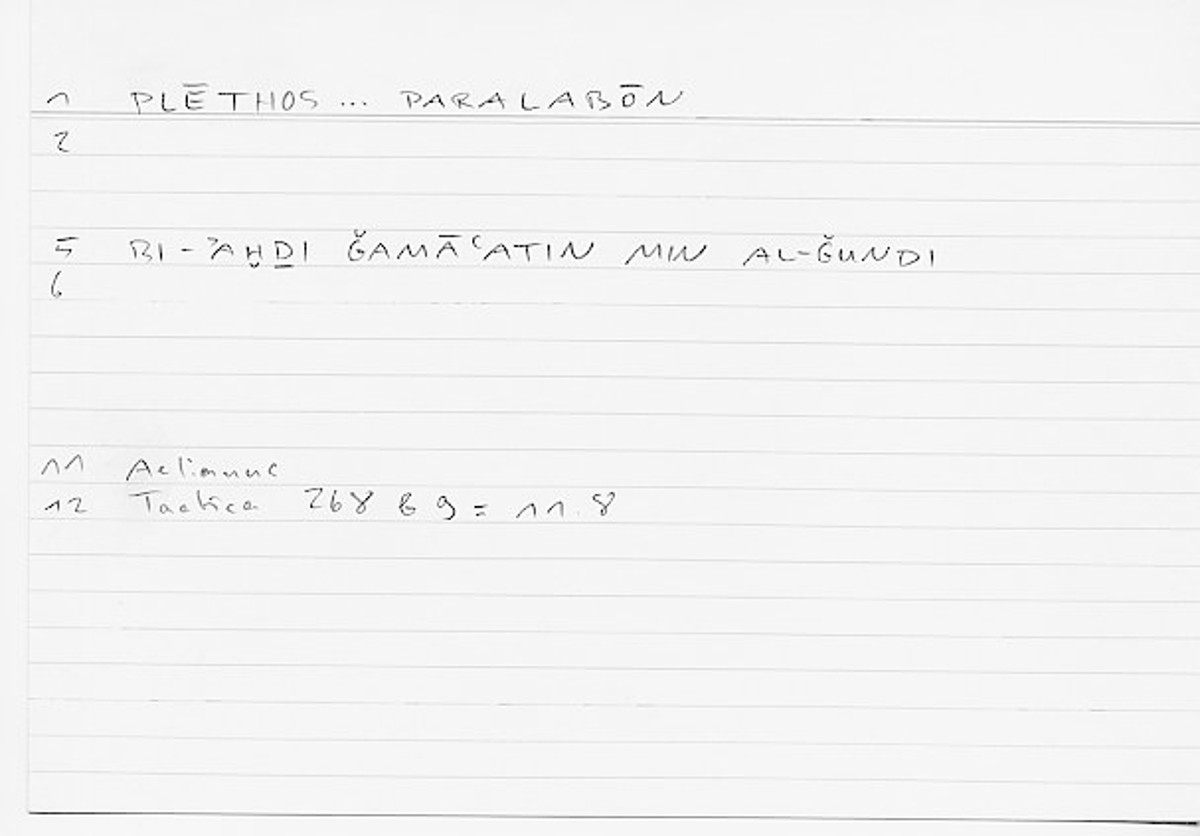 1 PLĒTHOS ... PARALABŌN
2
5 BI-ʾAḪḎI ǦAMĀʿATIN MIN AL-ǦUNDI
6
11 Aelianus
12 Tactica 268 b 9 = 11.8